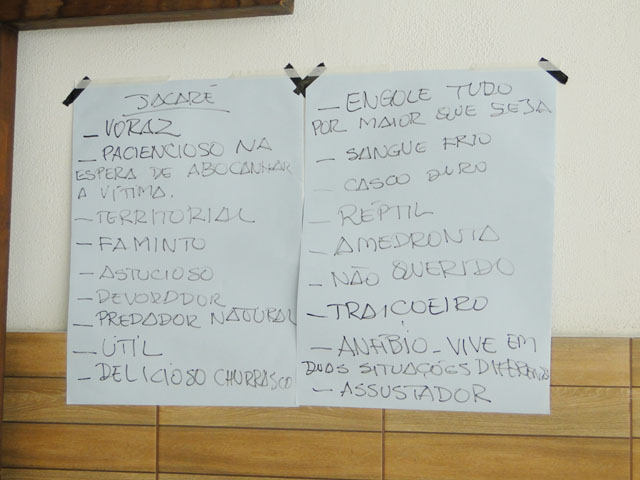 JACARÉ
- VORAZ
- PACIENCIOSO NA
ESPERA DE ABOCANHAR
A VÍTIMA.
- TERRITORIAL
- FAMINTO
- ASTUCIOSO
- DEVORADOR
- PREDADOR NATURAL
- ÚTIL
- DELICIOSO CHURRASCO
- ENGOLE TUDO
POR MAIOR QUE SEJA
- SANGUE FRIO
- CASCO DURO
- RÉPTIL
- AMEDRONTA
- NÃO QUERIDO
- TRAIÇOEIRO
- ANFÍBIO - VIVE EM
DUAS SITUAÇÕES DIFERENTES
- ASSUSTADOR